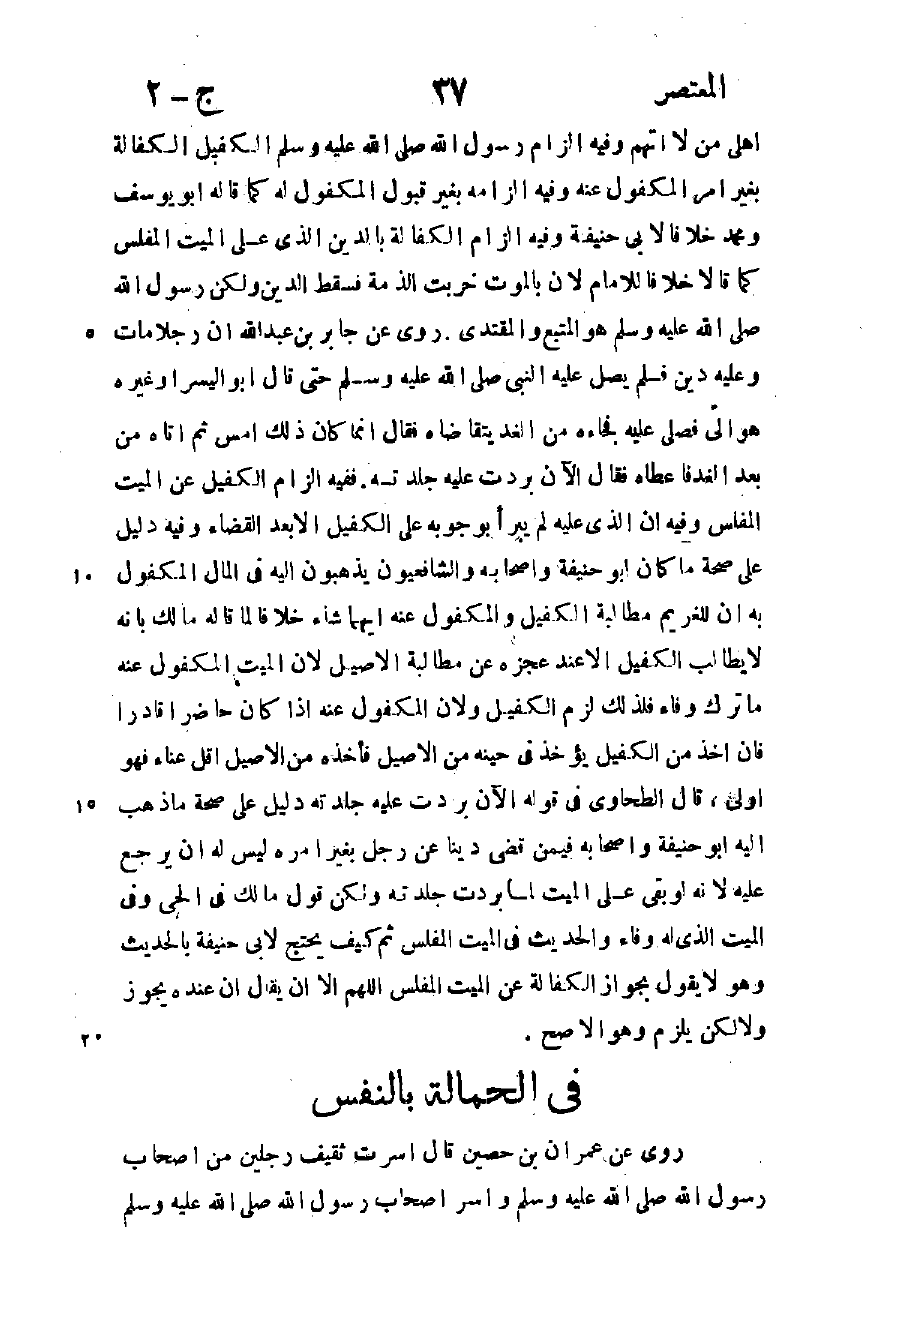 المعتصر ٣٧ ج - ٢
اهلى من لا اتهم وفيه الزام رسول الله صلى الله عليه وسلم الكفيل الكفالة
بغير امر المكفول عنه وفيه الزامه بغير قبول المكفول له كما قاله ابو يوسف
ومحمد خلافا لابى حنيفة وفيه الزام الكفالة بالدين الذى على الميت المفلس
كما قالا خلافا للامام لان بالموت خربت الذمة فسقط الدين ولكن رسول الله
صلى الله عليه وسلم هو المتبع والمقتدى . روى عن جابر بن عبدالله ان رجلا مات ٥
وعليه دين فلم يصل عليه النبى صلى الله عليه وسلم حتى قال ابو اليسر اوغيره
هو الىّ فصلى عليه فجاءه من الغد يتقاضاه فقال انما كان ذلك امس ثم اتاه من
بعد الغد فاعطاه فقال الآن بردت عليه جلدته . ففيه الزام الكفيل عن الميت
المفلس وفيه ان الذى عليه لم يبرأ بوجوبه على الكفيل الابعد القضاء وفيه دليل
على صحة ما كان ابو حنيفة واصحابه والشافعيون يذهبون اليه فى المال المكفول ١٠
به ان للغريم مطالبة الكفيل والمكفول عنه ايهما شاء خلافا لما قاله مالك بانه
لايطالب الكفيل الاعند عجزه عن مطالبة الاصيل لان الميت المكفول عنه
ما ترك وفاء فلذلك لزم الكفيل ولان المكفول عنه اذا كان حاضرا قادرا
فان اخذ من الكفيل يؤخذ فى حينه من الاصيل فأخذه من الاصيل اقل عناء فهو
اولى ، قال الطحاوى فى قوله الآن بردت عليه جلدته دليل على صحة ماذهب ١٥
اليه ابو حنيفة واصحابه فيمن قضى دينا عن رجل بغير امره ليس له ان يرجع
عليه لانه لو بقى على الميت لما بردت جلدته ولكن قول مالك فى الحى وفى
الميت الذى له وفاء والحديث فى الميت المفلس ثم كيف يحتج لابى حنيفة بالحديث
وهو لايقول بجواز الكفالة عن الميت المفلس اللهم الا ان يقال ان عنده يجوز
ولا لكن يلزم وهو الاصح . ٢٠
فى الحمالة بالنفس
روى عن عمران بن حصين قال اسرت ثقيف رجلين من اصحاب
رسول الله صلى الله عليه وسلم واسر اصحاب رسول الله صلى الله عليه وسلم